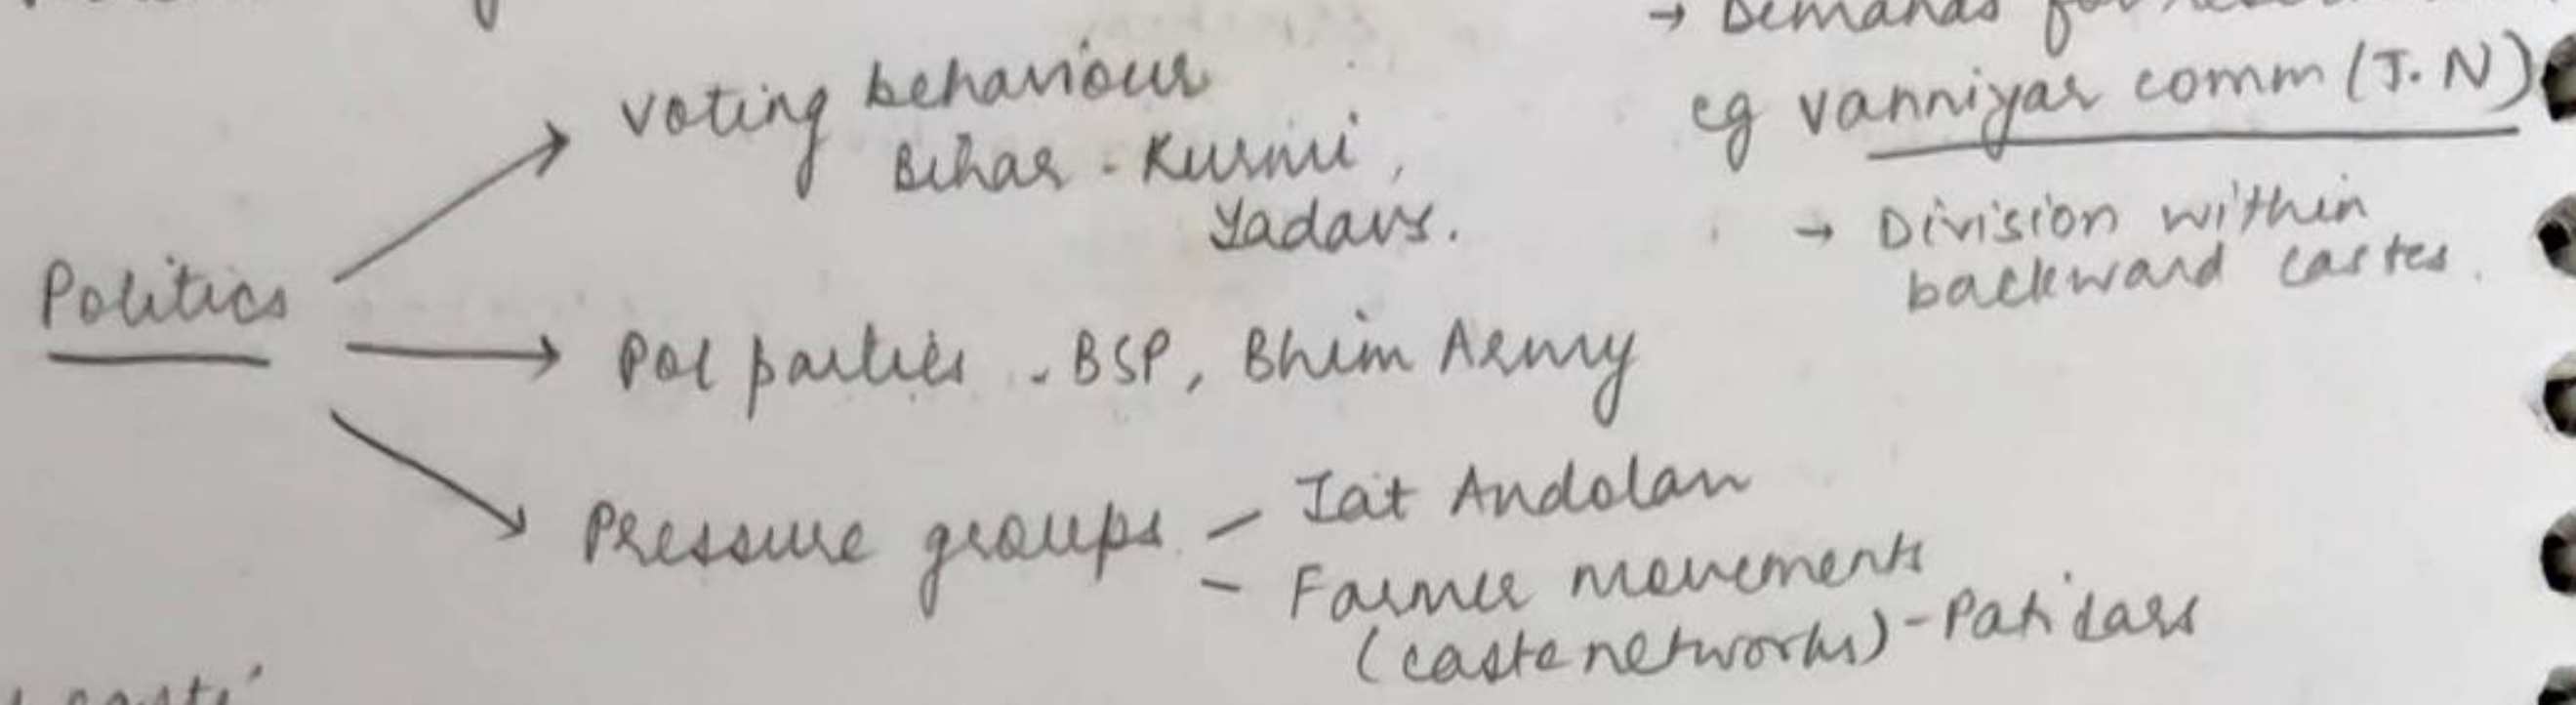 → Demands for
eg vanniyar comm (T.N)
→ Division within
backward castes.
Politics
voting behaviour
Bihar - Kurmi,
Yadavs.
Pol parties - BSP, Bhim Army
Pressure groups - Jat Andolan
- Farmer movements
(caste networks) - Patidars